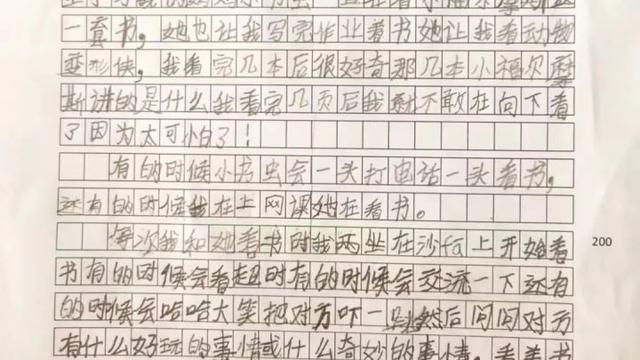 一套书，她也让我写完作业看书她让我看动物
变形侠，我看完几本后很好奇那几本小福尔摩
斯讲的是什么我看完几页后我就不敢在向下看
了因为太可怕了！
有的时候小书虫会一头打电话一头看书，
还有的时候我在上网课她在看书。
每次我和她看书时我两坐在沙fa上开始看
200
书有的时候会看超时有的时候会交流一下还有
的时候会哈哈大笑把对方吓一跳然后问问对方
有什么好玩的事情或什么奇妙的事情，看着书